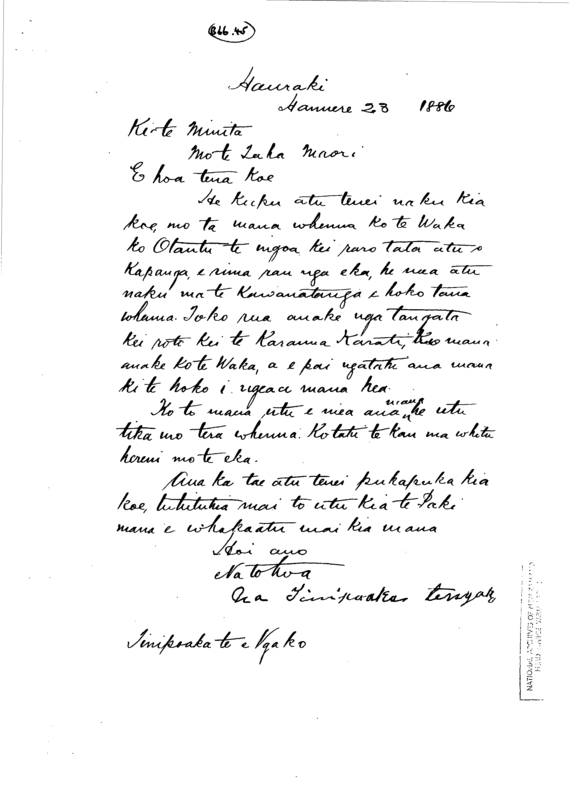 B66.45
Hauraki
Hanuere 23 1886
Ki te Minita
Mo te Taha Maori
E hoa tena koe
He kupu atu tenei naku kia
koe, mo ta mana whenua ko te Waka
ko Otautu te ingoa, kei raro tata atu o
Kapanga, e rima rau nga eka, he mea atu
naku ma te Kawanatanga e hoko taua
whenua. Toko rua anake nga tangata
kei roto kei te Karauna Karati, ko mana
anake ko te Waka, a e pai ngatahi ana mana
ki te hoko i ngeaei mana hea.
Ko to mana utu e mea ana mana he utu
tika mo tera whenua. Kotahi te kau ma whitu
hereni mo te eka.
Aua ka tae atu tenei pukapuka kia
koe, tuhituhia mai to utu kia te Paki
mana e whakaatu mai kia mana
Hoi ano
Na to hoa
Na
Te Ngako
NATIONAL ARCHIVES OF NEW ZEALAND
HEAD OFFICE